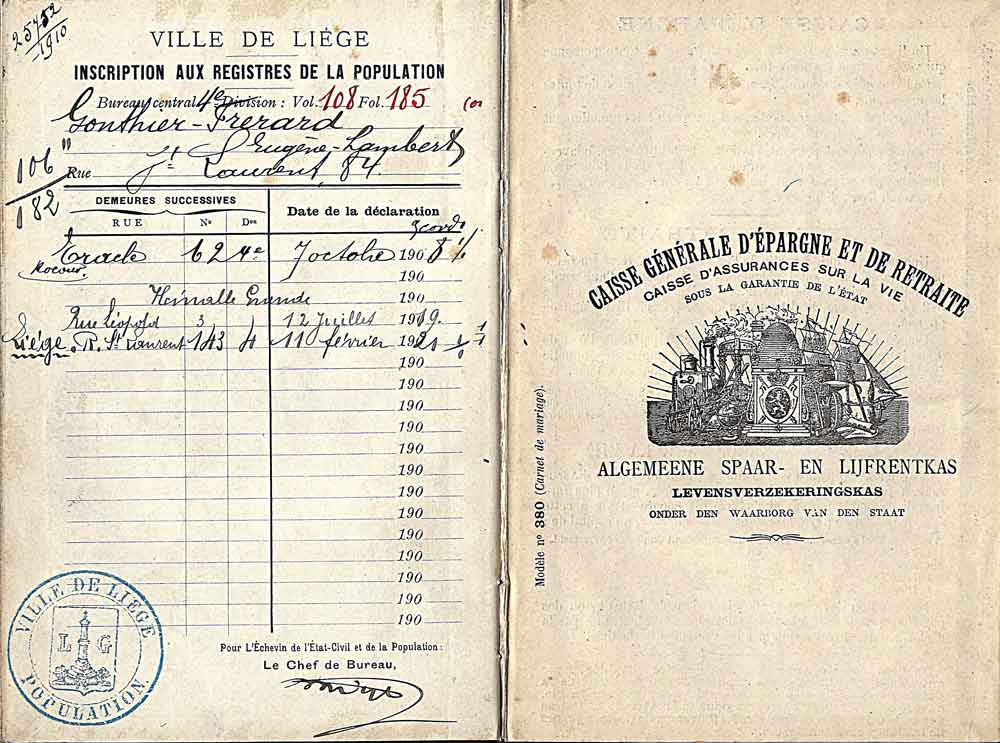 25752
1910
VILLE DE LIÉGE
INSCRIPTION AUX REGISTRES DE LA POPULATION
Bureau central 4e Division : Vol. 108 Fol. 185
Gonthier-Frerard
Eugène-Lambert
106
182
Rue St Laurent, 84.
DEMEURES SUCCESSIVES
RUE No Don Date de la déclaration
Eracle 62 4e 7 octobre 1908
Rocour 190
Heinalle Grande 190
Rue Léopold 3 12 Juillet 1919.
Liége. R. St Laurent 143 4 11 février 1921
190
190
190
190
190
190
190
190
190
190
190
190
VILLE DE LIEGE
L G
POPULATION.
Pour L'Échevin de l'État-Civil et de la Population :
Le Chef de Bureau,
CAISSE GÉNÉRALE D'ÉPARGNE ET DE RETRAITE
CAISSE D'ASSURANCES SUR LA VIE
SOUS LA GARANTIE DE L'ÉTAT
Modèle no 380 (Carnet de mariage).
ALGEMEENE SPAAR- EN LIJFRENTKAS
LEVENSVERZEKERINGSKAS
ONDER DEN WAARBORG VAN DEN STAAT